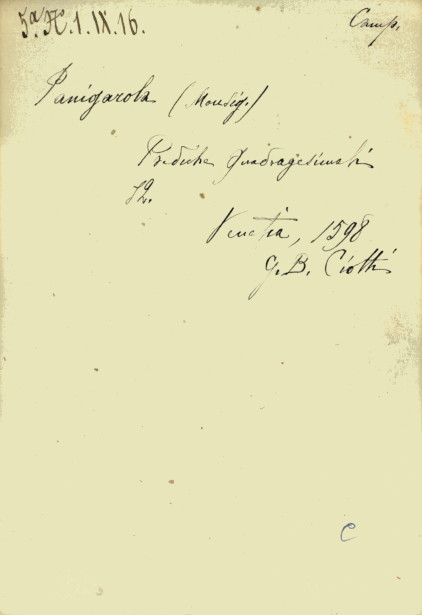 5.ª K.1.IX.16.
Camp.
Panigarola (Monsig.)
Prediche Quadragesimali
Venetia, 1598
G. B. Ciotti
C